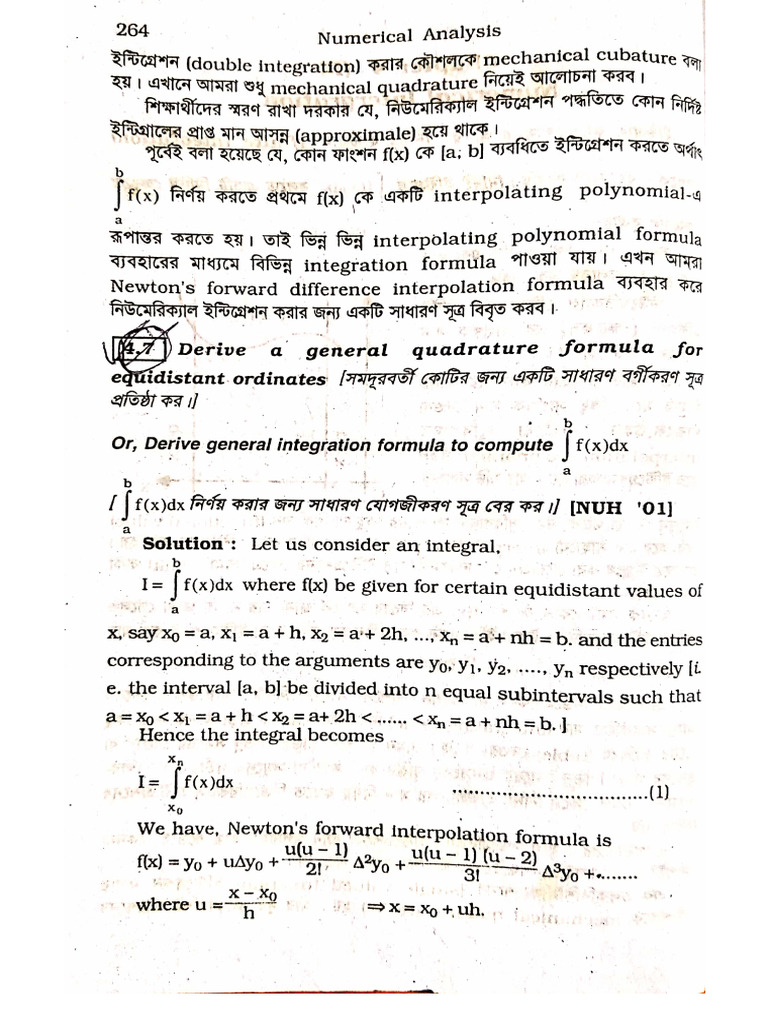 264 Numerical Analysis
ইন্টিগ্রেশন (double integration) করার কৌশলকে mechanical cubature বলা
হয়। এখানে আমরা শুধু mechanical quadrature নিয়েই আলোচনা করব।
শিক্ষার্থীদের স্মরণ রাখা দরকার যে, নিউমেরিক্যাল ইন্টিগ্রেশন পদ্ধতিতে কোন নির্দিষ্ট
ইন্টিগ্রালের প্রাপ্ত মান আসন্ন (approximale) হয়ে থাকে।
পূর্বেই বলা হয়েছে যে, কোন ফাংশন f(x) কে [a, b] ব্যবধিতে ইন্টিগ্রেশন করতে অর্থাৎ
∫ₐᵇ f(x) নির্ণয় করতে প্রথমে f(x) কে একটি interpolating polynomial-এ
রূপান্তর করতে হয়। তাই ভিন্ন ভিন্ন interpolating polynomial formula
ব্যবহারের মাধ্যমে বিভিন্ন integration formula পাওয়া যায়। এখন আমরা
Newton's forward difference interpolation formula ব্যবহার করে
নিউমেরিক্যাল ইন্টিগ্রেশন করার জন্য একটি সাধারণ সূত্র বিবৃত করব।
4.7 Derive a general quadrature formula for
equidistant ordinates [সমদূরবর্তী কোটির জন্য একটি সাধারণ বর্গীকরণ সূত্র
প্রতিষ্ঠা কর।]
Or, Derive general integration formula to compute ∫ₐᵇ f(x)dx
[ ∫ₐᵇ f(x)dx নির্ণয় করার জন্য সাধারণ যোগজীকরণ সূত্র বের কর।] [NUH '01]
Solution : Let us consider an integral,
I = ∫ₐᵇ f(x)dx where f(x) be given for certain equidistant values of
x, say x₀ = a, x₁ = a + h, x₂ = a + 2h, ..., xₙ = a + nh = b. and the entries
corresponding to the arguments are y₀, y₁, y₂, ...., yₙ respectively [i.
e. the interval [a, b] be divided into n equal subintervals such that
a = x₀ < x₁ = a + h < x₂ = a+ 2h < ...... < xₙ = a + nh = b. ]
Hence the integral becomes
I = ∫ₓ₀ˣⁿ f(x)dx ..................................(1)
We have, Newton's forward interpolation formula is
f(x) = y₀ + uΔy₀ + u(u – 1)/2! Δ²y₀ + u(u – 1) (u – 2)/3! Δ³y₀ +........
where u = x – x₀/h ⇒ x = x₀ + uh.